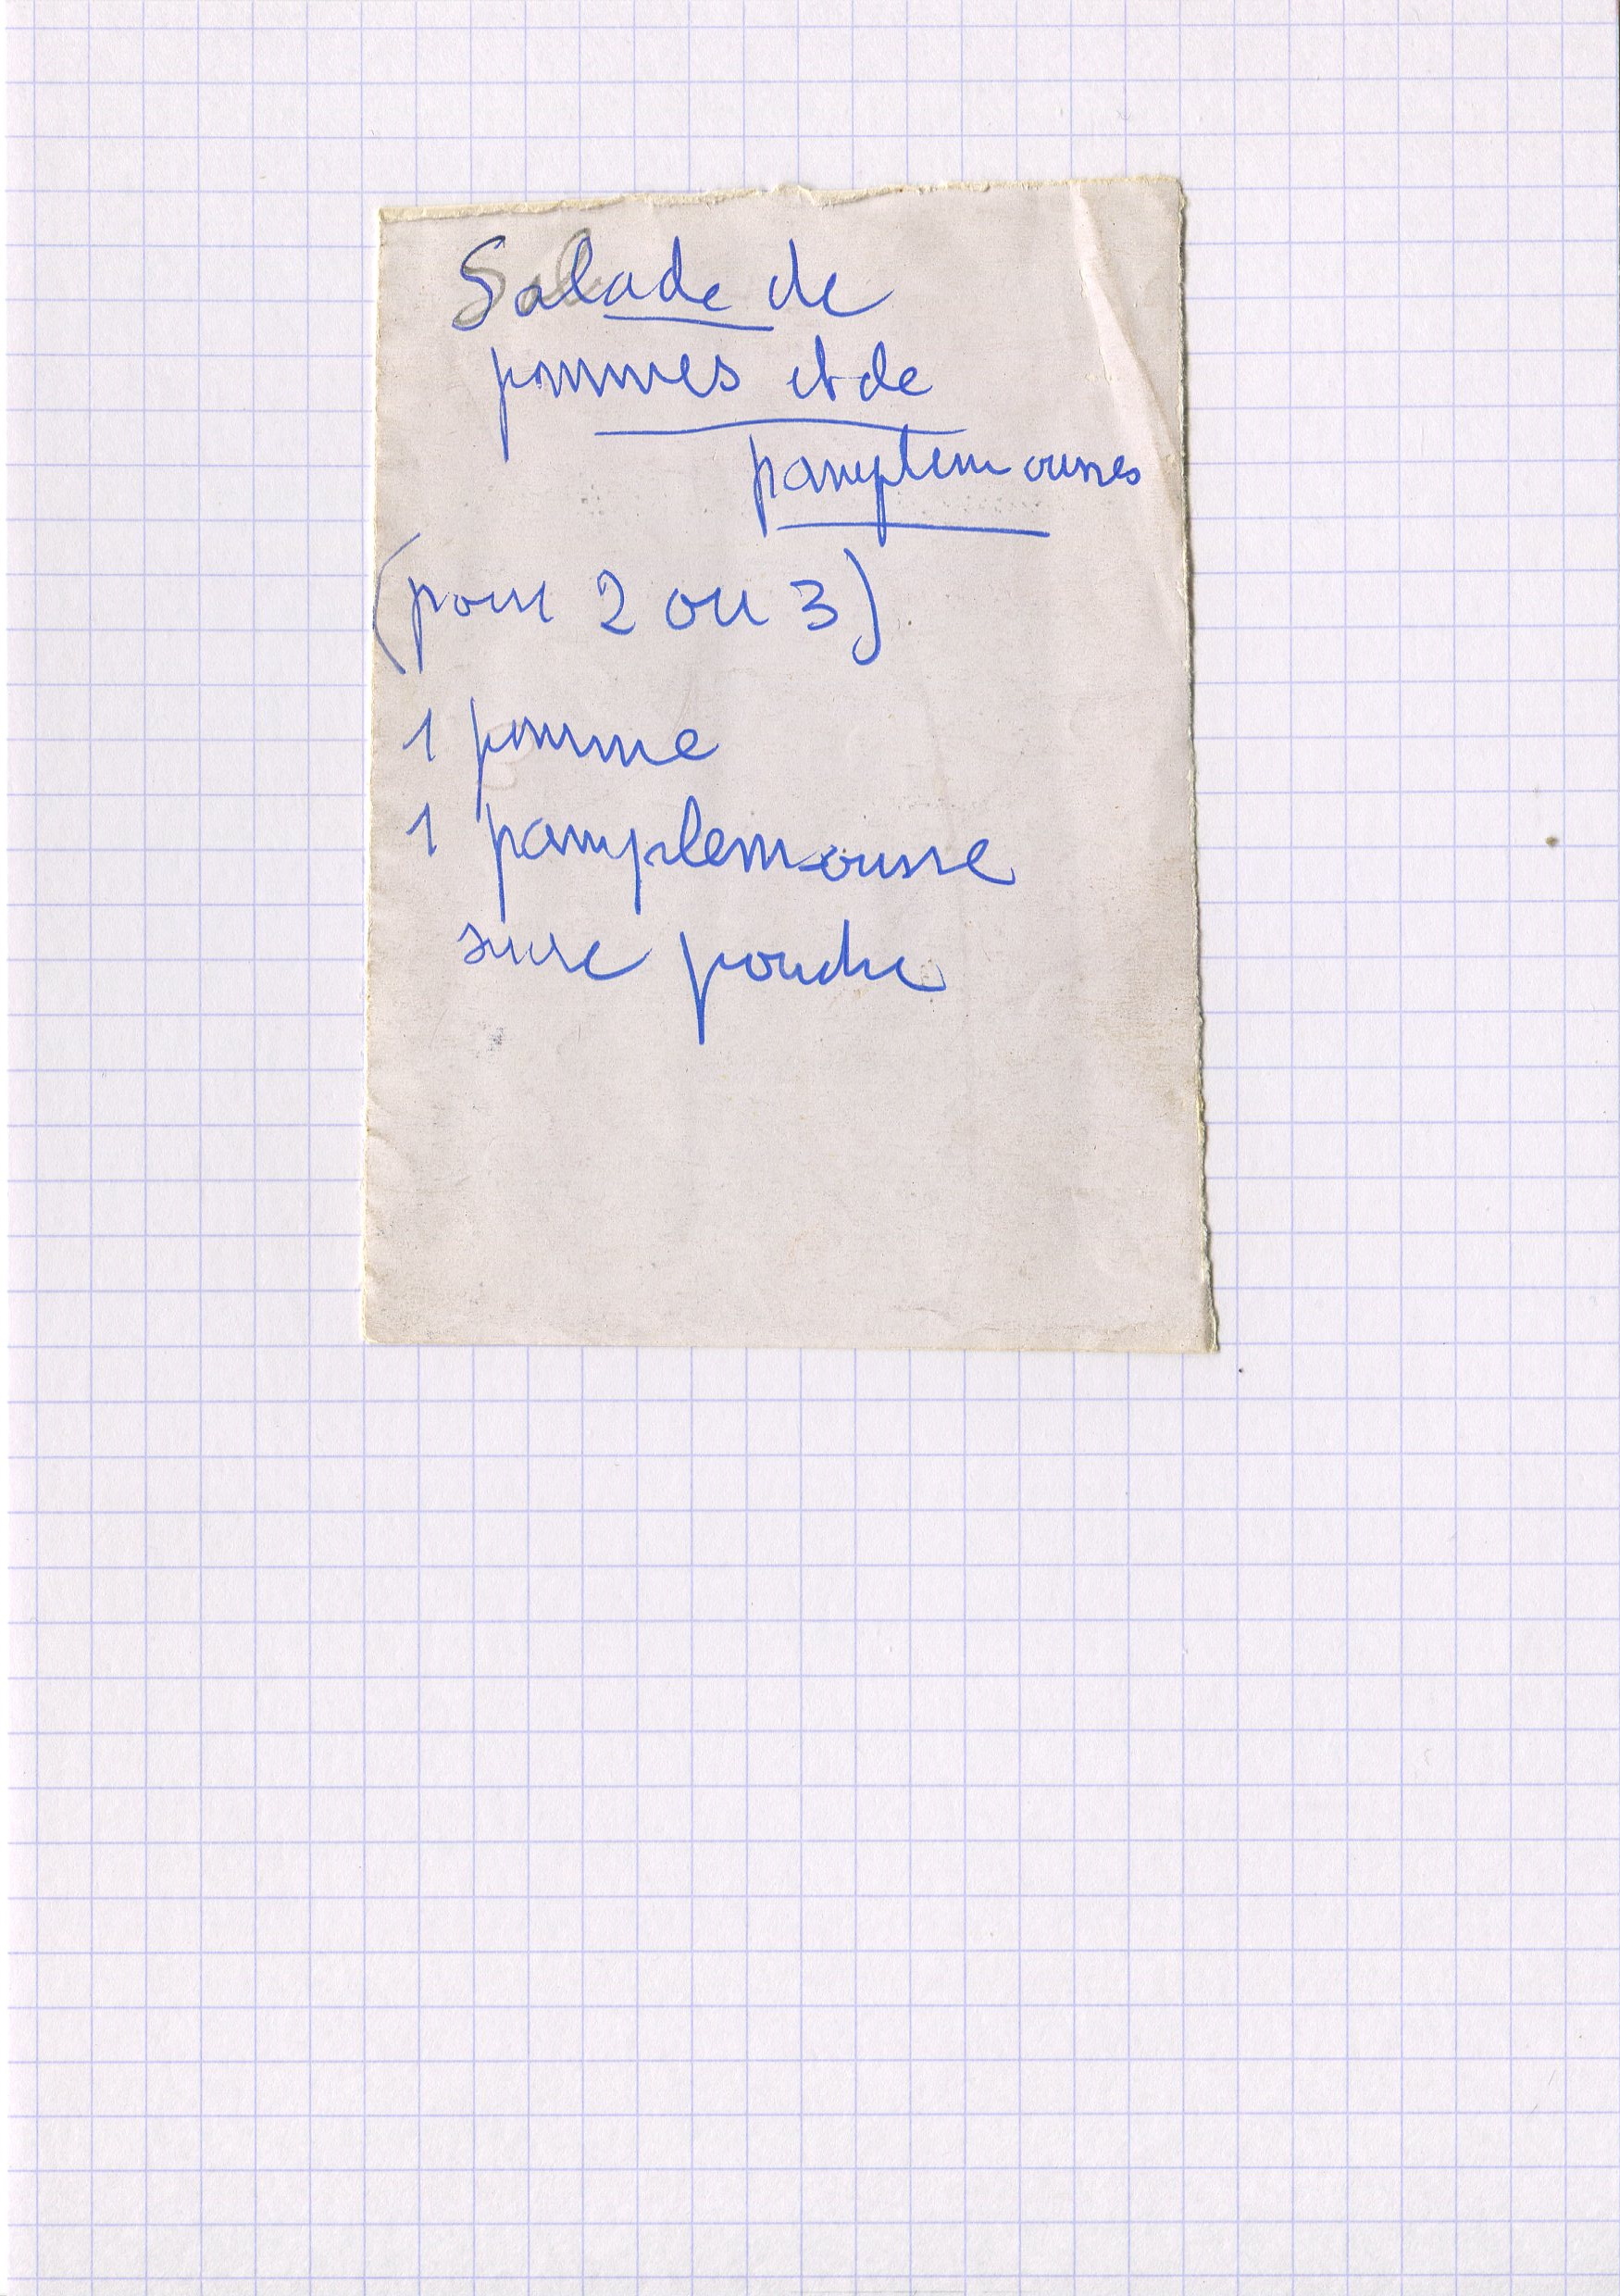 Salade de
pommes et de
pamplemousses
(pour 2 ou 3)
1 pomme
1 pamplemousse
sucre poudre